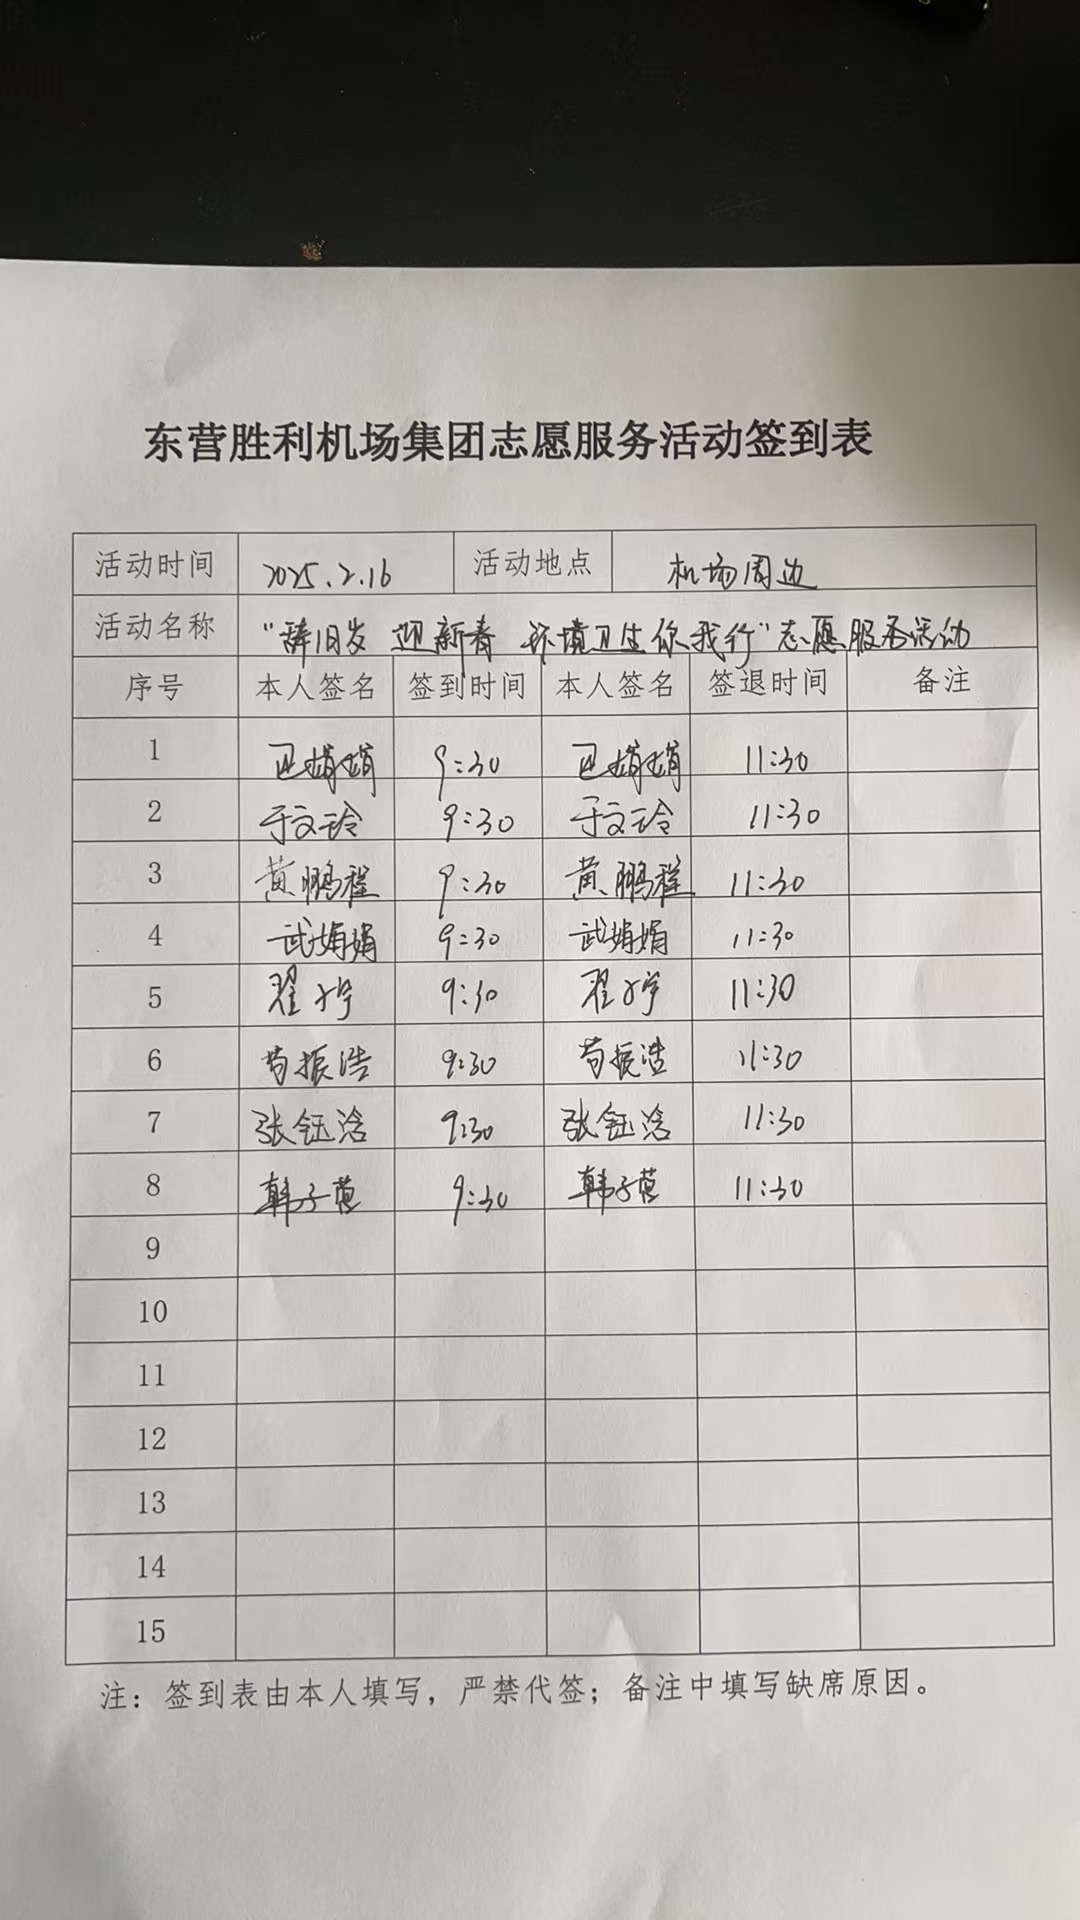 东营胜利机场集团志愿服务活动签到表
活动时间 2025.2.16 活动地点 机场周边
活动名称 “辞旧岁 迎新春 环境卫生你我行”志愿服务活动
序号 本人签名 签到时间 本人签名 签退时间 备注
1 娟娟 9:30 娟娟 11:30
2 于文玲 9:30 于文玲 11:30
3 黄鹏程 9:30 黄鹏程 11:30
4 武娟娟 9:30 武娟娟 11:30
5 翟 宇 9:30 翟 宇 11:30
6 苟振浩 9:30 苟振浩 11:30
7 张钰涵 9:30 张钰涵 11:30
8 韩子萱 9:30 韩子萱 11:30
9
10
11
12
13
14
15
注：签到表由本人填写，严禁代签；备注中填写缺席原因。